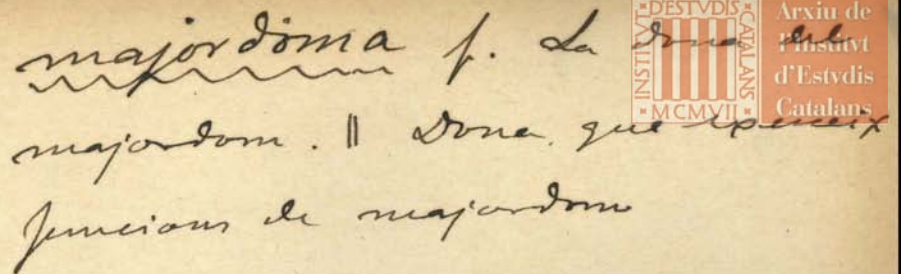 majordoma f. La dona del
majordom. || Dona que exerceix
funcions de majordom
INSTITVT D'ESTVDIS CATALANS
MCMVII
Arxiu de
l'Institvt
d'Estvdis
Catalans